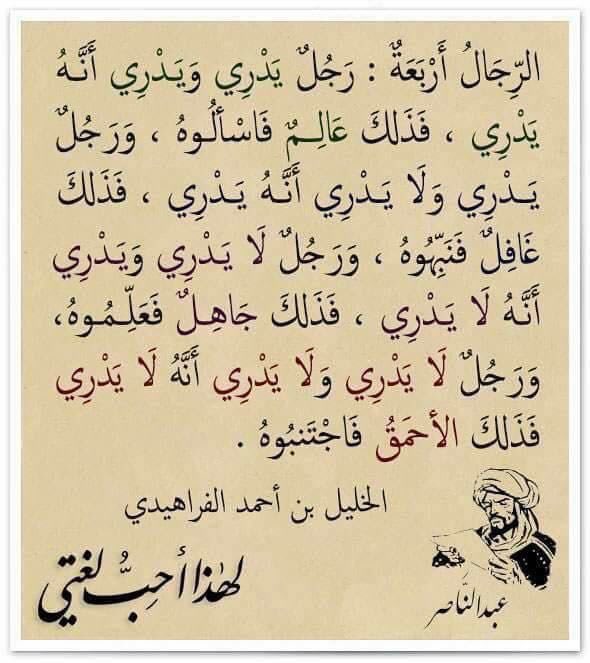 الرِّجَالُ أَرْبَعَةٌ : رَجُلٌ يَدْرِي وَيَدْرِي أَنَّهُ
يَدْرِي ، فَذَلكَ عَالِمٌ فَاسْأَلُوهُ ، وَرَجُلٌ
يَدْرِي وَلَا يَدْرِي أَنَّهُ يَدْرِي ، فَذَلكَ
غَافِلٌ فَنَبِّهُوهُ ، وَرَجُلٌ لَا يَدْرِي وَيَدْرِي
أَنَّهُ لَا يَدْرِي ، فَذَلكَ جَاهِلٌ فَعَلِّمُوهُ،
وَرَجُلٌ لَا يَدْرِي وَلَا يَدْرِي أَنَّهُ لَا يَدْرِي
فَذَلكَ الأَحمَقُ فَاجْتَنبُوهُ .
الخليل بن أحمد الفراهيدي
لهٰذا أحِبُّ لغتي
عبدالنَّاصر